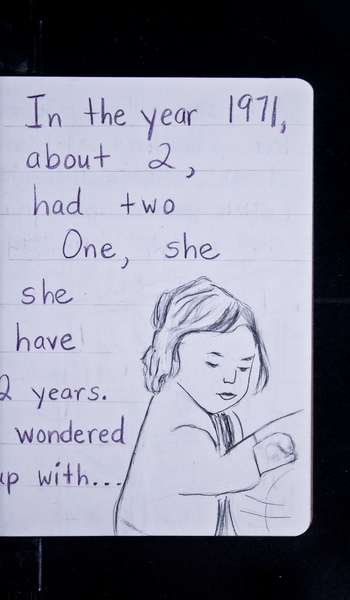 In the year 1971,
about 2,
had two
One, she
she
have
2 years.
wondered
up with...